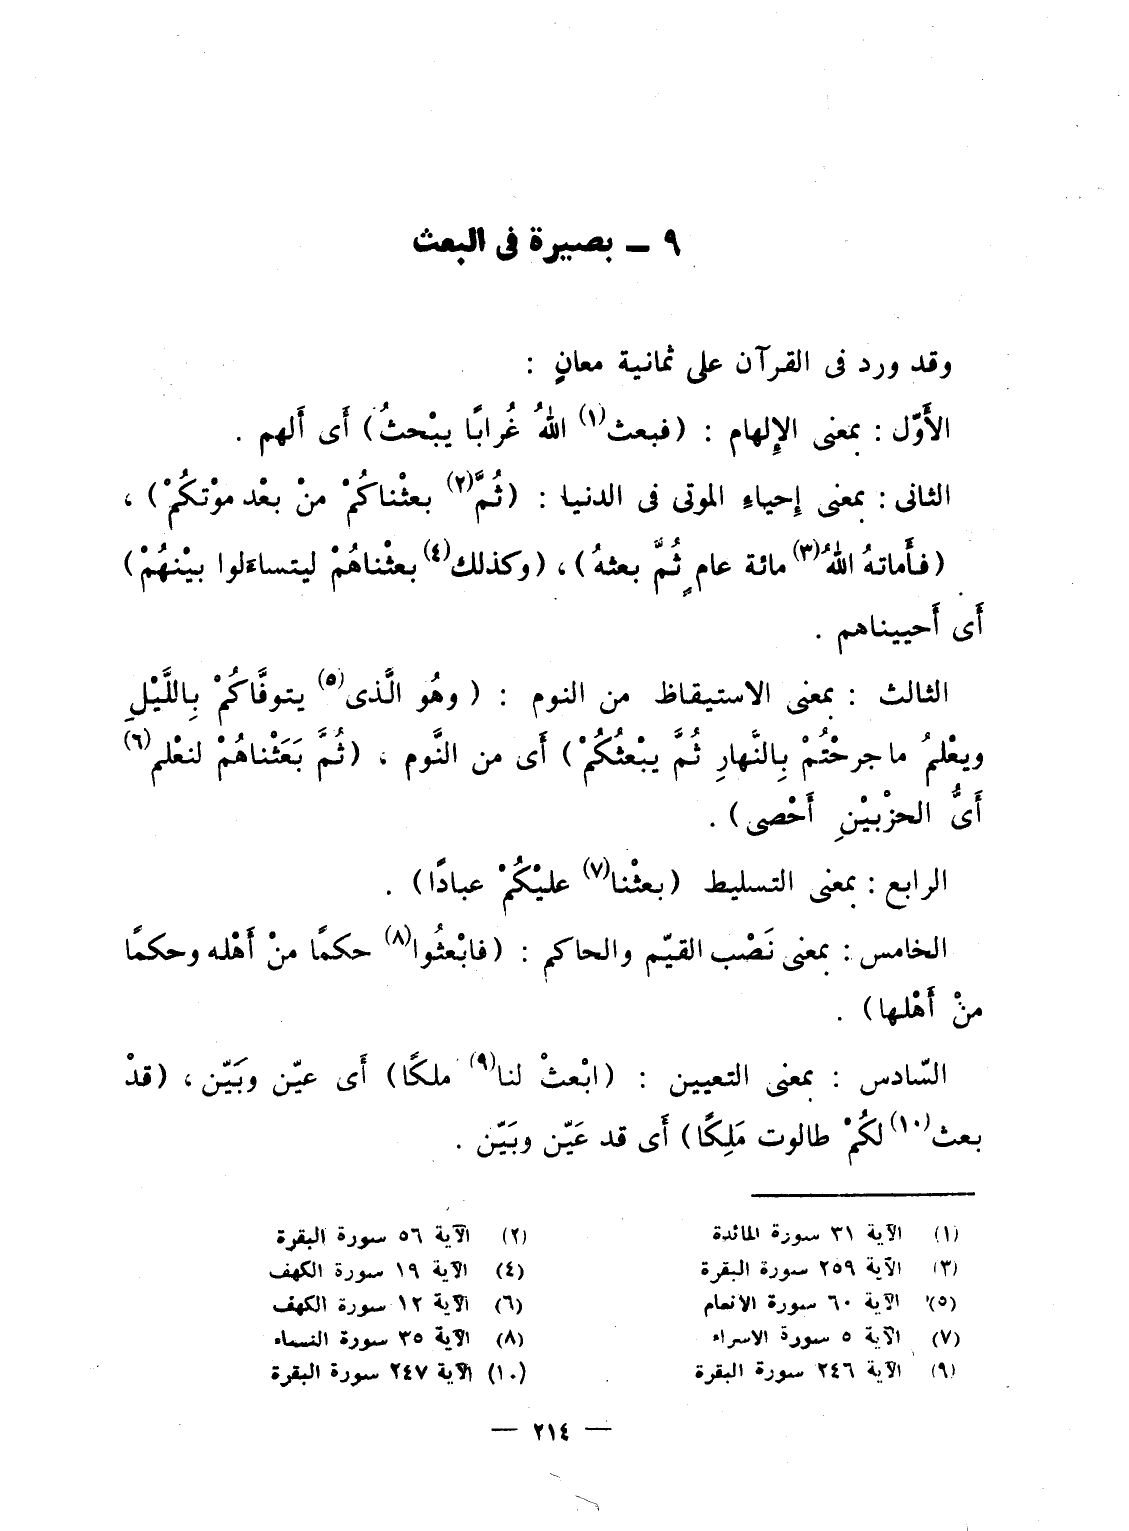 ٩ — بصيرة فى البعث
وقد ورد فى القرآن على ثمانية معانٍ :
الأَوّل : بمعنى الإِلهام : (فبعث(١) اللهُ غُرابًا يبْحثُ) أَى أَلهم .
الثانى : بمعنى إِحياءِ الموتى فى الدنيا : (ثُمَّ(٢) بعثْناكُمْ منْ بعْد موْتكُمْ) ،
(فأَماتهُ اللهُ(٣) مائة عامٍ ثُمَّ بعثهُ) ، (وكذلك(٤) بعثْناهُمْ ليتساءَلوا بيْنهُمْ)
أَى أَحييناهم .
الثالث : بمعنى الاستيقاظ من النوم : (وهُو الَّذى(٥) يتوفَّاكُمْ بِاللَّيْلِ
ويعْلمُ ما جرحْتُمْ بِالنَّهارِ ثُمَّ يبْعثُكُمْ) أَى من النَّوم ، (ثُمَّ بَعَثْناهُمْ لنعْلم(٦)
أَىُّ الحزْبيْنِ أَحْصى) .
الرابع : بمعنى التسليط (بعثْنا(٧) عليْكُمْ عبادًا) .
الخامس : بمعنى نَصْب القيّم والحاكم : (فابْعثُوا(٨) حكمًا منْ أَهْله وحكمًا
منْ أَهْلها) .
السّادس : بمعنى التعيين : (ابْعثْ لنا(٩) ملكًا) أَى عيّن وبَيّن ، (قدْ
بعث(١٠) لكُمْ طالوت مَلِكًا) أَى قد عَيّن وبَيّن .
(١) الآية ٣١ سورة المائدة (٢) الآية ٥٦ سورة البقرة
(٣) الآية ٢٥٩ سورة البقرة (٤) الآية ١٩ سورة الكهف
(٥) الآية ٦٠ سورة الانعام (٦) الآية ١٢ سورة الكهف
(٧) الآية ٥ سورة الاسراء (٨) الآية ٣٥ سورة النساء
(٩) الآية ٢٤٦ سورة البقرة (١٠) الآية ٢٤٧ سورة البقرة
— ٢١٤ —